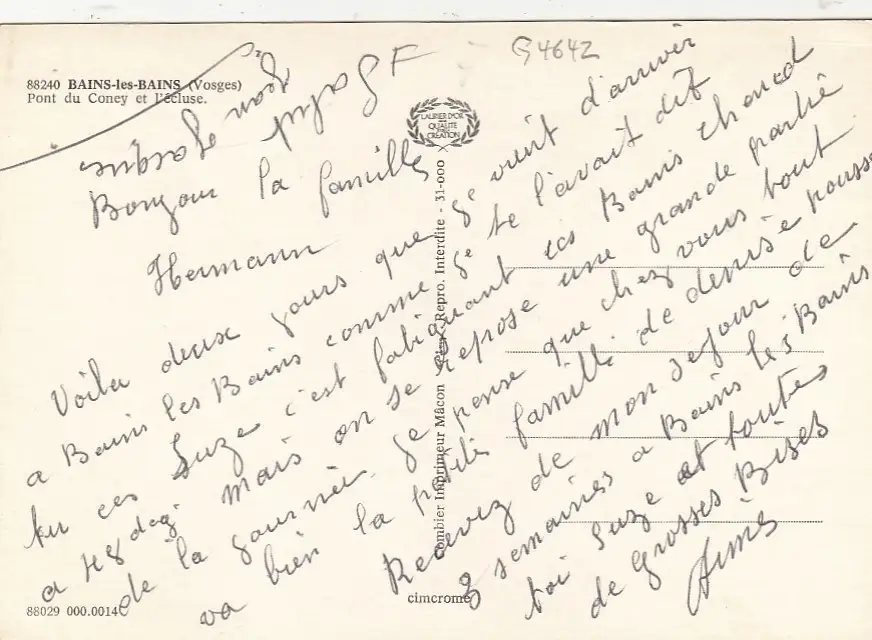 88240 BAINS-les-BAINS (Vosges)
Pont du Coney et l'écluse.
G4642
LAURIER D'OR
QUALITE
CREATION
Bonjour la famille
Hermann
Voila deux jours que je vient d'arriver
a Bains les Bains comme je te l'avait dit
tu es Suze c'est fatiguant ces Bains chaud
a 48 deg. mais on se repose une grande partie
de la journée. Je pense que chez vous tout
va bien la petite famille de depuse pousse
Recevez de mon sejour de
3 semaines a Bains les Bains
toi Suze et toutes
de Grosses Bises
Aimé
Combier Imprimeur Mâcon Repro. Interdite - 31-000
cimcrome
88029 000.0014